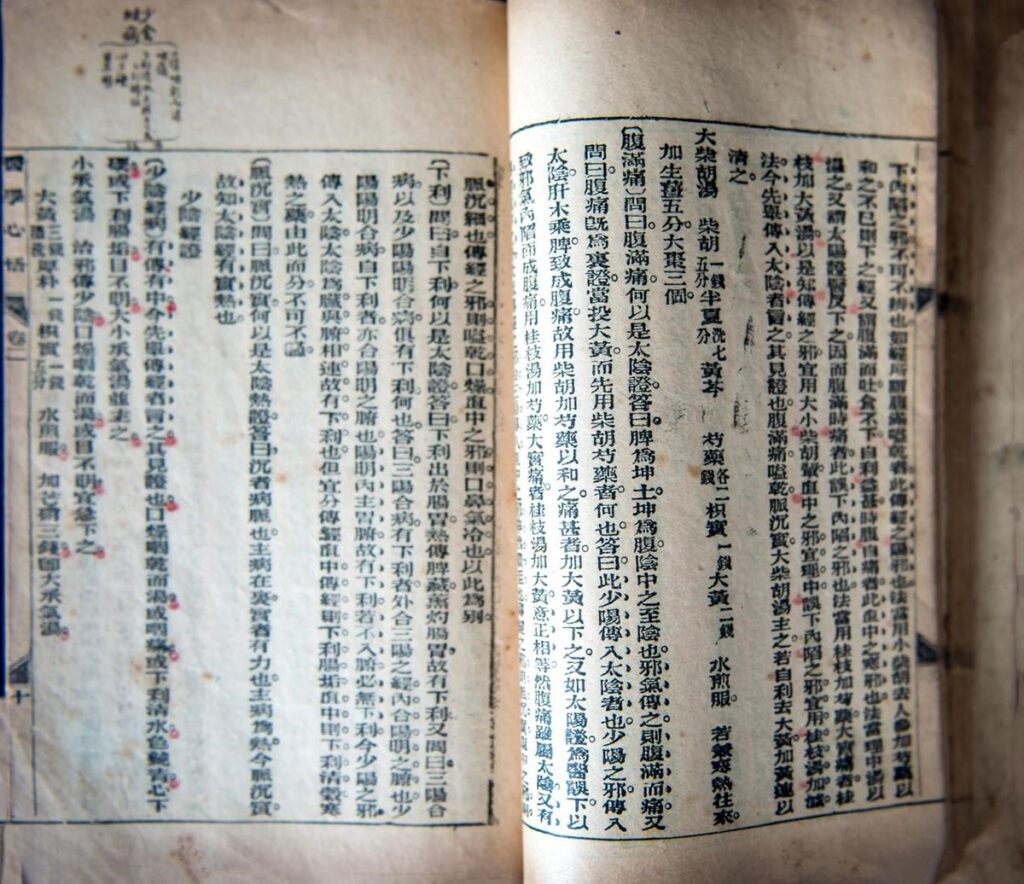 下內陷之邪不可不辨也如經所謂腹滿嗌乾者此傳經之陽邪也法當用小柴胡去人參加芍藥以
和之不已則下之經又謂腹滿而吐食不下自利益甚時腹自痛者此直中之寒邪也法當理中湯以
溫之又謂太陽證醫反下之因而腹滿時痛者此誤下內陷之邪也法當用桂枝加芍藥大實痛者桂
枝加大黃湯以是知傳經之邪宜用大小柴胡湯直中之邪宜理中誤下內陷之邪宜用桂枝湯加減
法今先舉傳入太陰者言之其見證也腹滿痛嗌乾脈沉實大柴胡湯主之若自利去大黃加黃連以
清之
大柴胡湯 柴胡一錢五分 半夏洗七分 黃芩 芍藥各二錢 枳實一錢 大黃二錢 水煎服 若無寒熱往來
加生薑五分大棗三個
〔腹滿痛〕問曰腹滿痛何以是太陰證答曰脾為坤土坤為腹陰中之至陰也邪氣傳之則腹滿而痛又
問曰腹痛既為裏證當投大黃而先用柴胡芍藥者何也答曰此少陽傳入太陰者也少陽之邪傳入
太陰肝木乘脾致成腹痛故用柴胡加芍藥以和之痛甚者加大黃以下之又如太陽證為醫誤下以
致邪氣內陷而成腹痛用桂枝湯加芍藥大實痛者桂枝湯加大黃意正相等然腹痛雖屬太陰又有
脈沉細也傳經之邪則嗌乾口燥直中之邪則口鼻氣冷也以此為別
〔下利〕問曰自下利何以是太陰證答曰下利出於腸胃熱傳脾臟薰灼腸胃故有下利又問曰三陽合
病以及少陽陽明合病俱有下利何也答曰三陽合病有下利者外合三陽之經內合陽明之腑也少
陽陽明合病自下利者亦合陽明之腑也陽明內主胃腑故有下利若不入腑必無下利今少陽之邪
傳入太陰太陰為臟與腑相連故有下利也但宜分傳經直中傳經則下利腸垢直中則下利清穀寒
熱之藥由此而分不可不謹
〔脈沉實〕問曰脈沉實何以是太陰熱證答曰沉者病脈也主病在裏實者有力也主病為熱今脈沉實
故知太陰經有實熱也
少陰經證
〔少陰經病〕有傳有中今先舉傳經者言之其見證也口燥咽乾而渴或咽痛或下利清水色純青心下
硬或下利腸垢目不明大小承氣湯並主之
小承氣湯 治邪傳少陰口燥咽乾而渴或目不明宜急下之
大黃三錢 厚朴一錢 枳實一錢五分 水煎服 加芒硝三錢即大承氣湯
醫學心悟 卷一 十